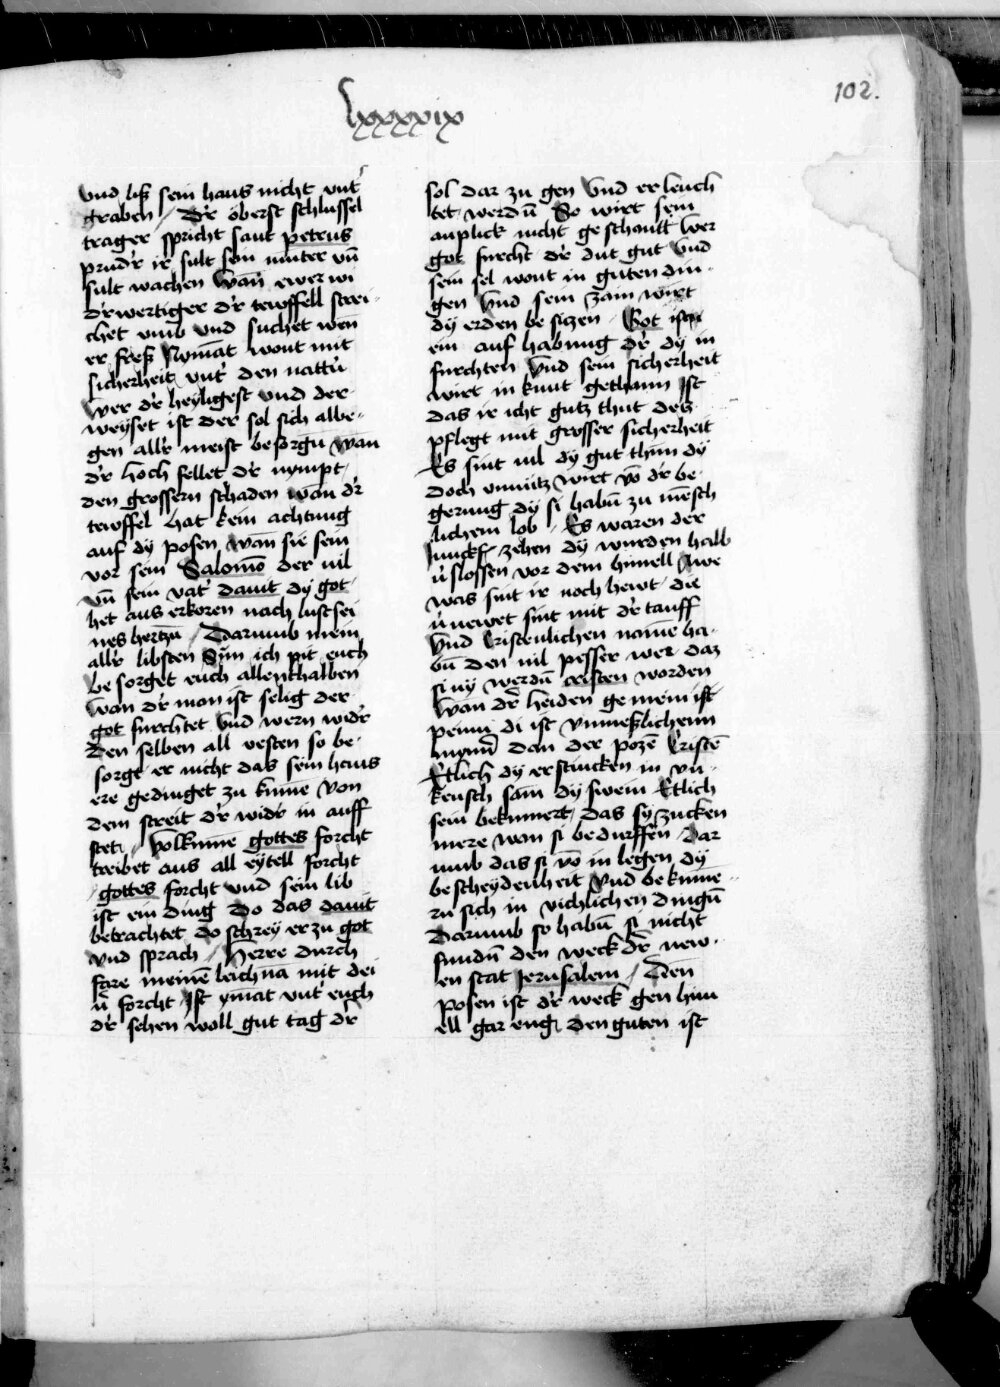 102.
lxxxxix
vnd liß sein haus nicht vnt'
graben / Dr oberst schlussel
trager spricht sant petrus
prud'r ir sult sein nuter vn̄
sult wachen wan̄ ewer wi
d'rwertiger d'r tewffell strei-
chet vmb vnd suchet wen
er freß Nyma͂t wont mit
sicherheit vnt' den nattr̄n
Wer d'r heyligest vnd der
weyset ist der sol sich albe-
gen all'r meist besorgn̄ wan̄
d'r hoch fellet d'r nympt
den grossern schaden wan d'r
tewffel hat kein achtung
auf dy posen wan̄ sie sein
vor sein Salomo͂ der vil
vn̄ sein vat' dauit dy got
het aus erkoren nach lust sei
nes hertzn̄ / Darumb mein
all'r libsten Sun̄ ich pit euch
besorget euch allenthalben
wan d'r man ist selig der
got furchtet vnd wern wid'r
den selben all vesten so be-
sorgt er nicht das sein haus
ere gedinget zu kume͂ von
dem streit d'r wid'r in auff
stet / Volkume͂ gottes forcht
treibet aus all eytell forcht
gottes forcht vnd sein lib
ist ein ding Do das dauit
betrachtet do schrey er zu got
vnd sprach / Herre durch
fare meine͂ leichna͂ mit dei
n̄ forcht Ist yma͂t vnt' euch
d'r sehen woll gut tag d'r
sol dar zu gen vnd erleuch
tet werdn̄ So wirt sein
anplick nicht geschantt wer
got furcht d'r dut gut vnd
sein sel wont in guten din-
gen vnd sein sam wirt
dy erden besiczen Got ist
ein auf habung d'r dy in
furchten vnd sein sicherheit
wirt in kunt gethann Ist
das ir icht gutz thut des
pflegt mit grosser sicherheit
Es sint vil dy gut thun dy
doch vnnutz wirt vo͂ d'r be-
gerung dy si habn̄ zu me͂sch
lichem lob / Es waren der
Junckf' zehen dy wurden halb
v'slossen vor dem himell Awe
was sint ir noch hewt die
v'newet sint mit d'r tauff
vnd cristenlichen name͂ ha-
bn̄ den vil pesser wer daz
si ny werdn̄ cristen worden
wan d'r heiden gemein ist
peinn di ist vnmeßlicheinn
mynn'r dan der poze͂ Criste͂
Etlich dy erstincken in vn-
keusch sam dy swein Etlich
sein bekumert das sy zucken
mere wan si bedurffen Dar
umb das si vo͂ in legen dy
bescheydenheit vnd bekume-
rn sich in vichlichen dingn̄
Darumb so habn̄ si nicht
fundn̄ den weck d'r new-
en stat Jerusalem / Den
posen ist d'r weck gen him
ell gar eng den guten ist